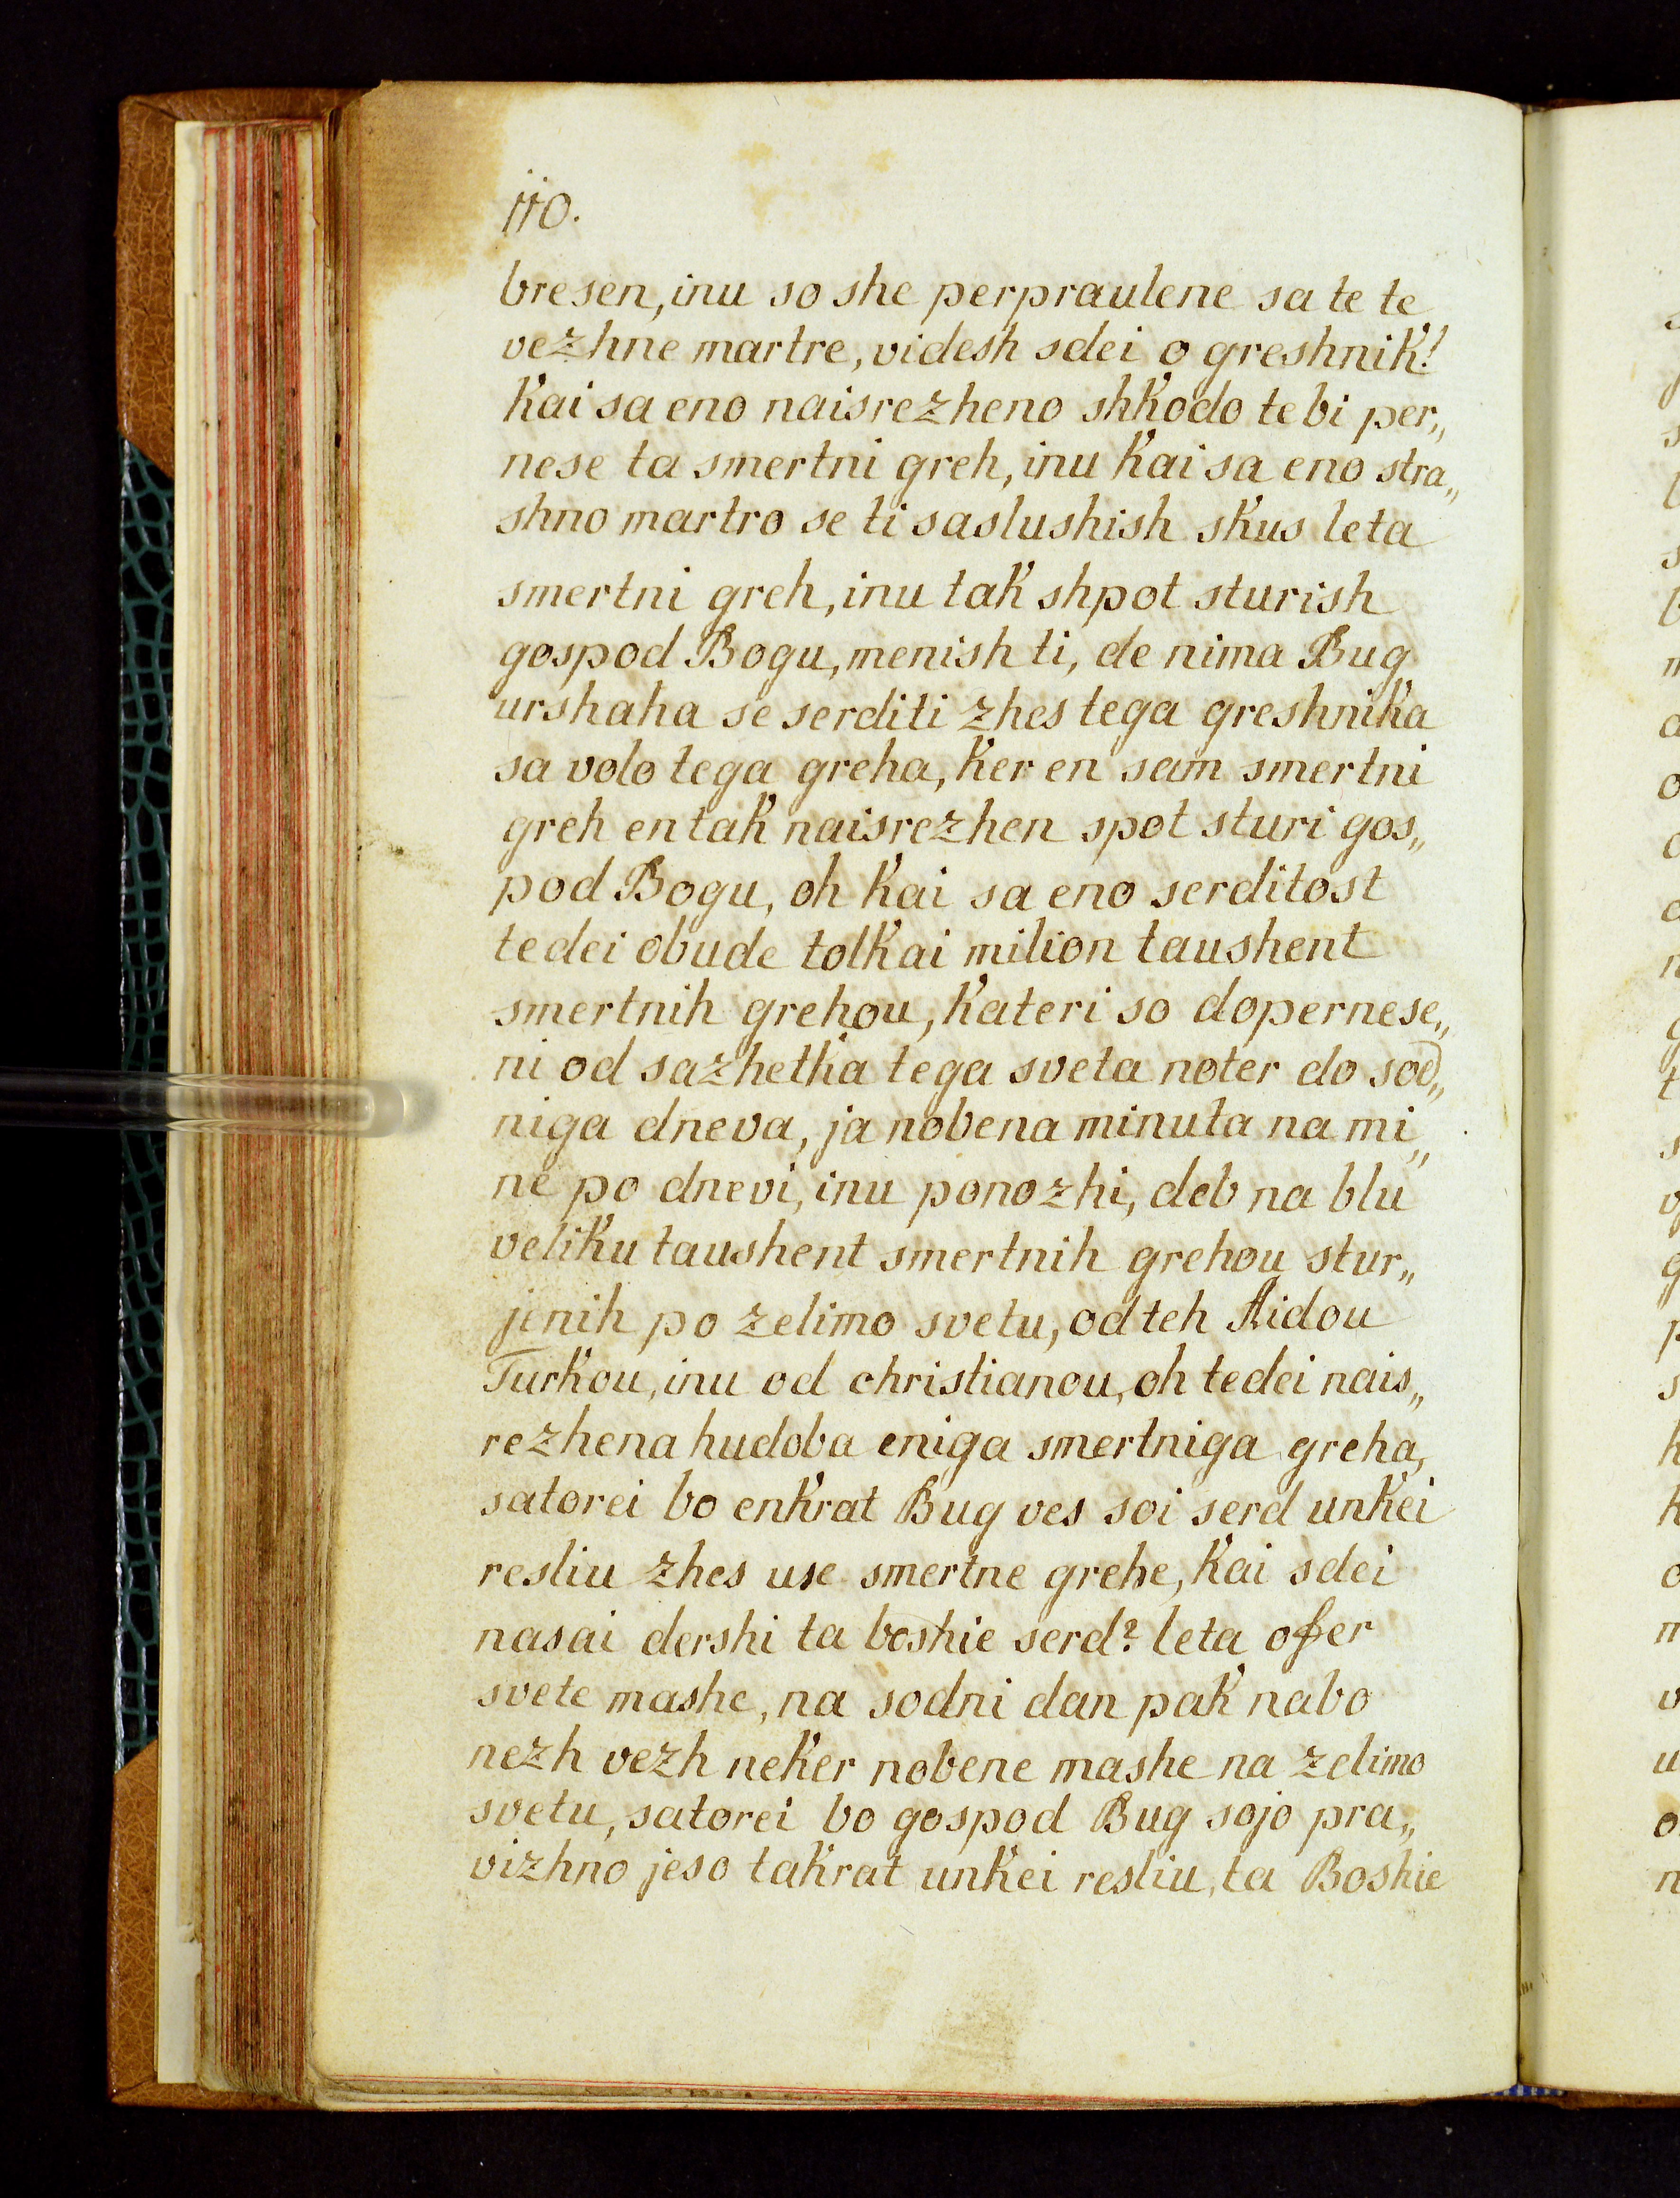 110.
bresen, inu so she perpraulene sa te te
vezhne martre, videsh sdei o greshnik!
kai sa eno naisrezheno shkodo tebi per„
nese ta smertni greh, inu kai sa eno stra„
shno martro se ti saslushish skus leta
smertni greh, inu tak shpot sturish
gospod Bogu, menish ti, de nima Bug
urshaha se serditi zhes tega greshnika
sa volo tega greha, ker en sam smertni
greh en tak naisrezhen spot sturi gos„
pod Bogu, oh kai sa eno serditost
tedei obude tolkai milion taushent
smertnih grehou, kateri so dopernese„
ni od sazhetka tega sveta noter do sod„
niga dneva, ja nobena minuta na mi„
ne po dnevi, inu ponozhi, deb na blu
veliku taushent smertnih grehou stur„
jenih po zelimo svetu, od teh Aidou
Turkou, inu od christianou, oh tedei nais„
rezhena hudoba eniga smertniga greha,
satorei bo enkrat Bug ves soi serd unkei
resliu zhes use smertne grehe, kai sdei
nasai dershi ta boshie serd? leta ofer
svete mashe, na sodni dan pak nabo
nezh vezh neker nobene mashe na zelimo
svetu, satorei bo gospod Bug sojo pra„
vizhno jeso takrat unkei resliu, ta Boshie